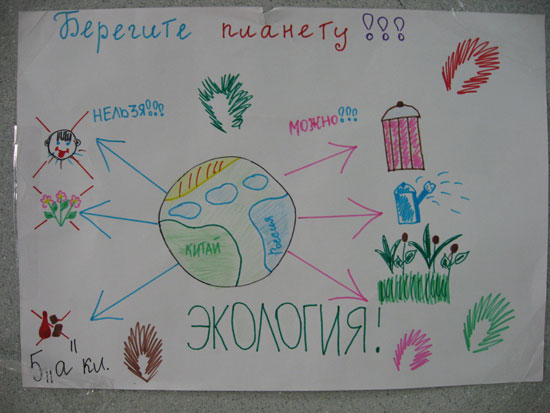 Берегите планету!!!
НЕЛЬЗЯ!!!
МОЖНО!!!
КИТАЙ
Россия
ЭКОЛОГИЯ!
5 „а" кл.